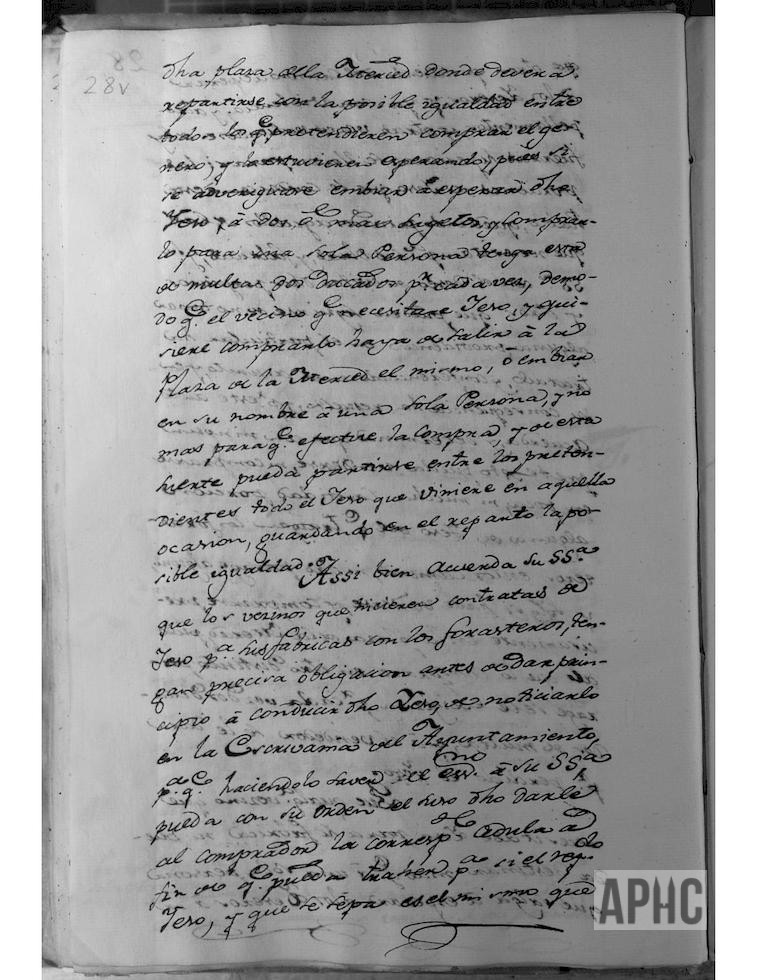 28
28v
dha plaza de la Merced donde devera
repartirse con la posible igualdad entre
todos los q.e pretendieren comprar el ge-
nero, y lo estuvieren esperando, pues si
se averiguare embiar à esperar dho
Yeso, à dos ò mas sugetos, y comprar-
lo para una sola Persona tenga esta
de multa dos Ducados p.r cada vez, demo-
do q.e el vecino q.e necesitare Yeso, y qui-
siere comprarlo haya de salir à la
Plaza de la Merced el mismo, ò embiar
en su nombre à una sola Persona, y no
mas para q.e efectue la compra, y de esta
suerte pueda partirse entre los preten-
dientes todo el Yeso que viniere en aquella
ocasion, guardando en el reparto la po-
sible igualdad. Assi bien acuerda su SS.a
que los vezinos que hicieren contratas de
Yeso p.a sus fabricas con los forasteros, ten-
gan precisa obligacion antes de dar prin-
cipio à conducir dho Yeso, de noticiarlo
en la Escrivania del Ayuntamiento,
p.a q.e haciendolo saver el ess.no à su SS.a
pueda con su orden el suso dho darle
al comprador la corresp.te Cedula à
fin de q.e pueda traher p.a si el
Yeso, y que se sepa es el mismo que
APHC